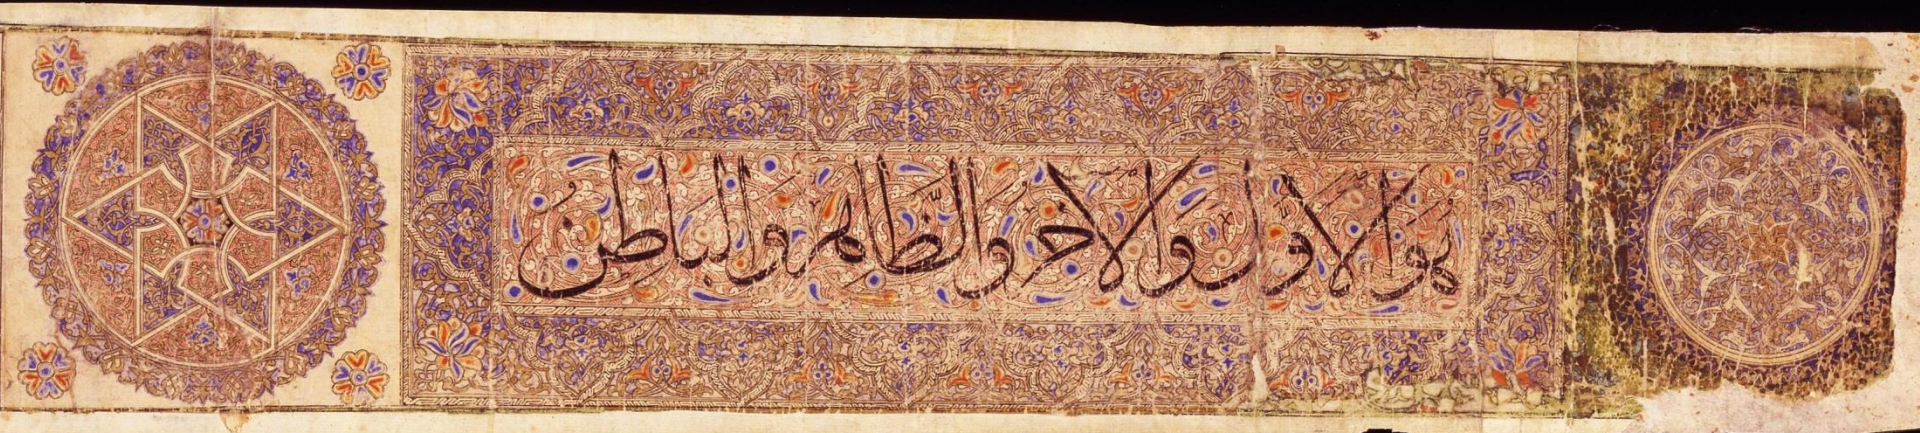 هو الاول والاخر والظاهر والباطن